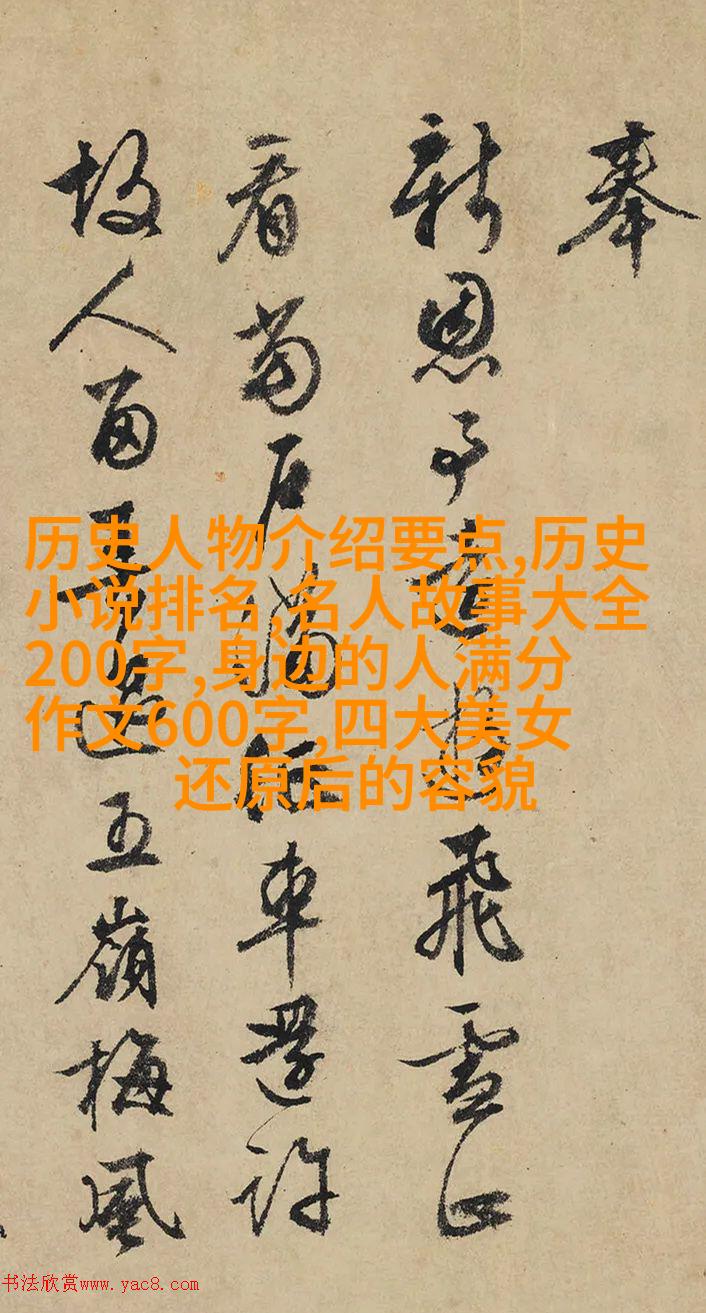 奉
新恩予飛雪
看車還許
故人五嶺梅風
历史人物介绍要点,历史
小说排名,名人故事大全
200字,身边的人满分
作文600字,四大美女
还原后的容貌
书法欣赏www.yac8.com